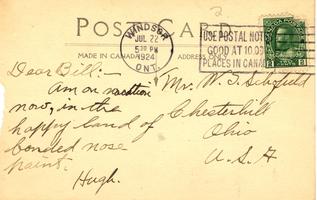 POST CARD
WINDSOR
JUL 22
5 30 PM
1924
ONT.
USE POSTAL NOT
GOOD AT 10.00
PLACES IN CANAD
2 2
MADE IN CANADA
ADDRESS
Dear Bill:-
Am on vacation
now, in the
happy land of
bonded nose
paint.
Hugh.
Mr. W. T. Schofield
Chesterhill
Ohio
U.S.A